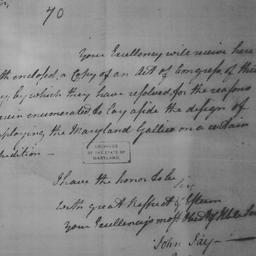 70
Your Excellency will receive here
th enclosed, a Copy of an Act of Congress of this
by which they have resolved, for the reasons
rein enumerated to lay aside the design of
mploying the Maryland Gallies on a certain
dition —
ARCHIVES
OF THE STATE OF
MARYLAND
I have the honor to be
with great Respect & Esteem
your Excellency's most
John Jay